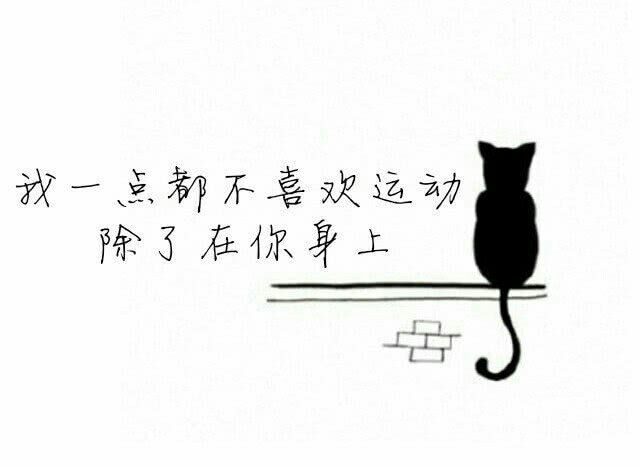 我一点都不喜欢运动
除了在你身上